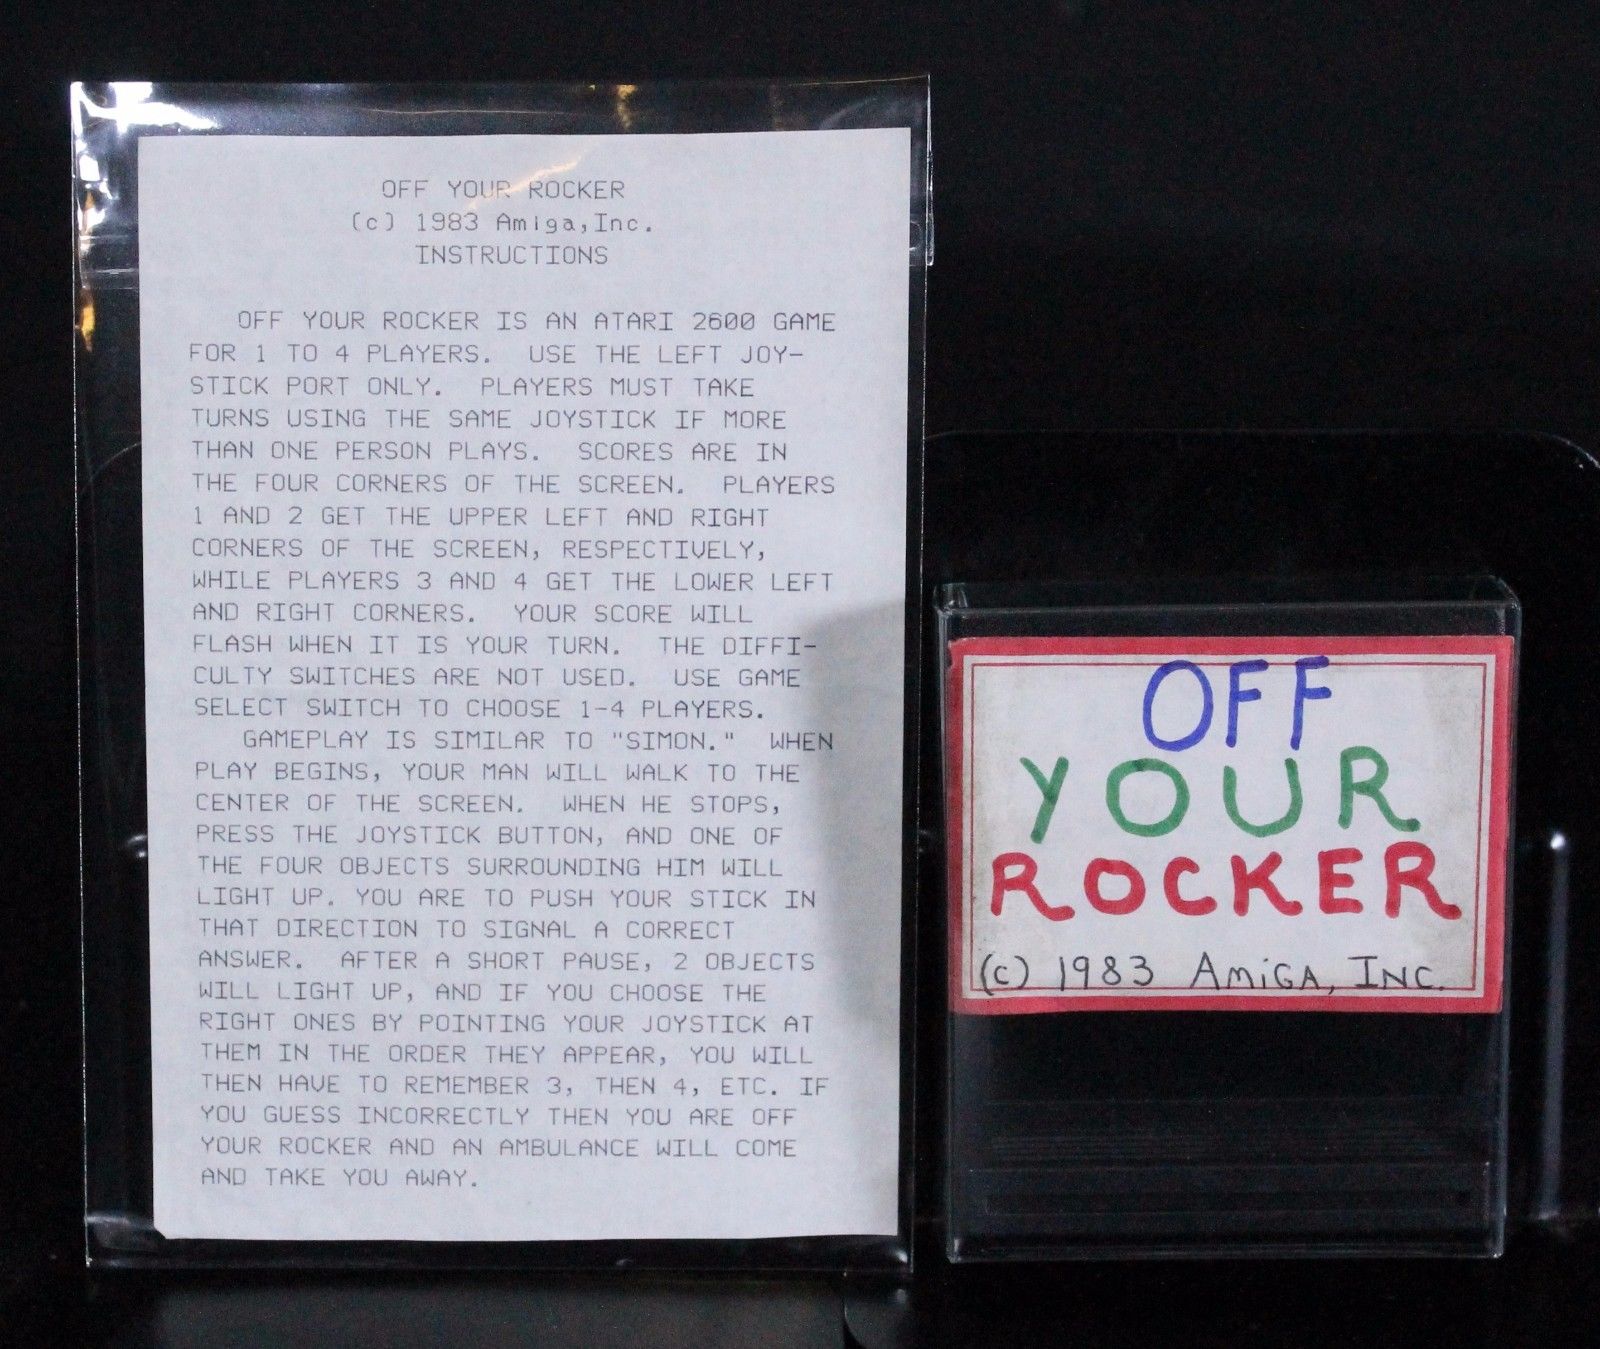 OFF YOUR ROCKER
(c) 1983 Amiga,Inc.
INSTRUCTIONS
OFF YOUR ROCKER IS AN ATARI 2600 GAME
FOR 1 TO 4 PLAYERS. USE THE LEFT JOY-
STICK PORT ONLY. PLAYERS MUST TAKE
TURNS USING THE SAME JOYSTICK IF MORE
THAN ONE PERSON PLAYS. SCORES ARE IN
THE FOUR CORNERS OF THE SCREEN. PLAYERS
1 AND 2 GET THE UPPER LEFT AND RIGHT
CORNERS OF THE SCREEN, RESPECTIVELY,
WHILE PLAYERS 3 AND 4 GET THE LOWER LEFT
AND RIGHT CORNERS. YOUR SCORE WILL
FLASH WHEN IT IS YOUR TURN. THE DIFFI-
CULTY SWITCHES ARE NOT USED. USE GAME
SELECT SWITCH TO CHOOSE 1-4 PLAYERS.
GAMEPLAY IS SIMILAR TO "SIMON." WHEN
PLAY BEGINS, YOUR MAN WILL WALK TO THE
CENTER OF THE SCREEN. WHEN HE STOPS,
PRESS THE JOYSTICK BUTTON, AND ONE OF
THE FOUR OBJECTS SURROUNDING HIM WILL
LIGHT UP. YOU ARE TO PUSH YOUR STICK IN
THAT DIRECTION TO SIGNAL A CORRECT
ANSWER. AFTER A SHORT PAUSE, 2 OBJECTS
WILL LIGHT UP, AND IF YOU CHOOSE THE
RIGHT ONES BY POINTING YOUR JOYSTICK AT
THEM IN THE ORDER THEY APPEAR, YOU WILL
THEN HAVE TO REMEMBER 3, THEN 4, ETC. IF
YOU GUESS INCORRECTLY THEN YOU ARE OFF
YOUR ROCKER AND AN AMBULANCE WILL COME
AND TAKE YOU AWAY.
OFF
YOUR
ROCKER
(c) 1983 AMiGA, INC.